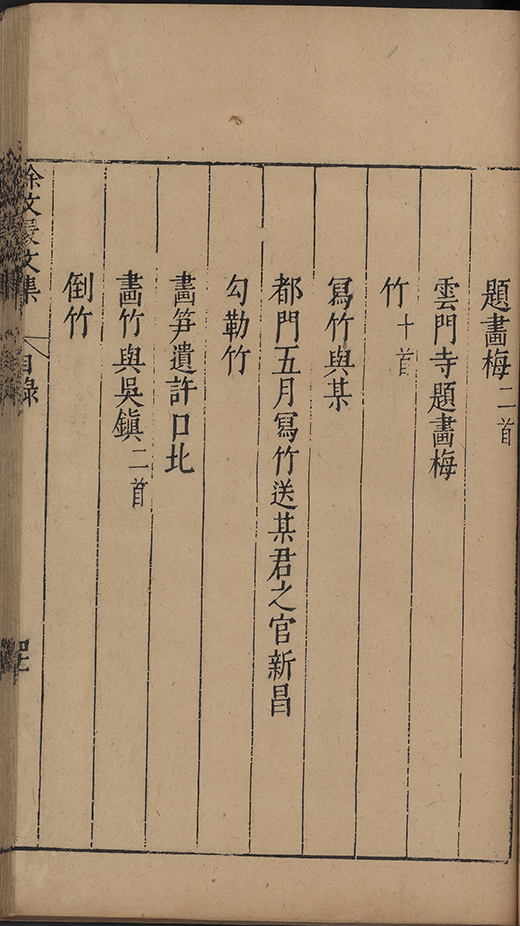 題畫梅二首
雲門寺題畫梅
竹十首
寫竹與某
都門五月寫竹送某君之官新昌
勾勒竹
畫笋遺許口北
畫竹與吳鎮二首
倒竹
徐文長文集
目錄